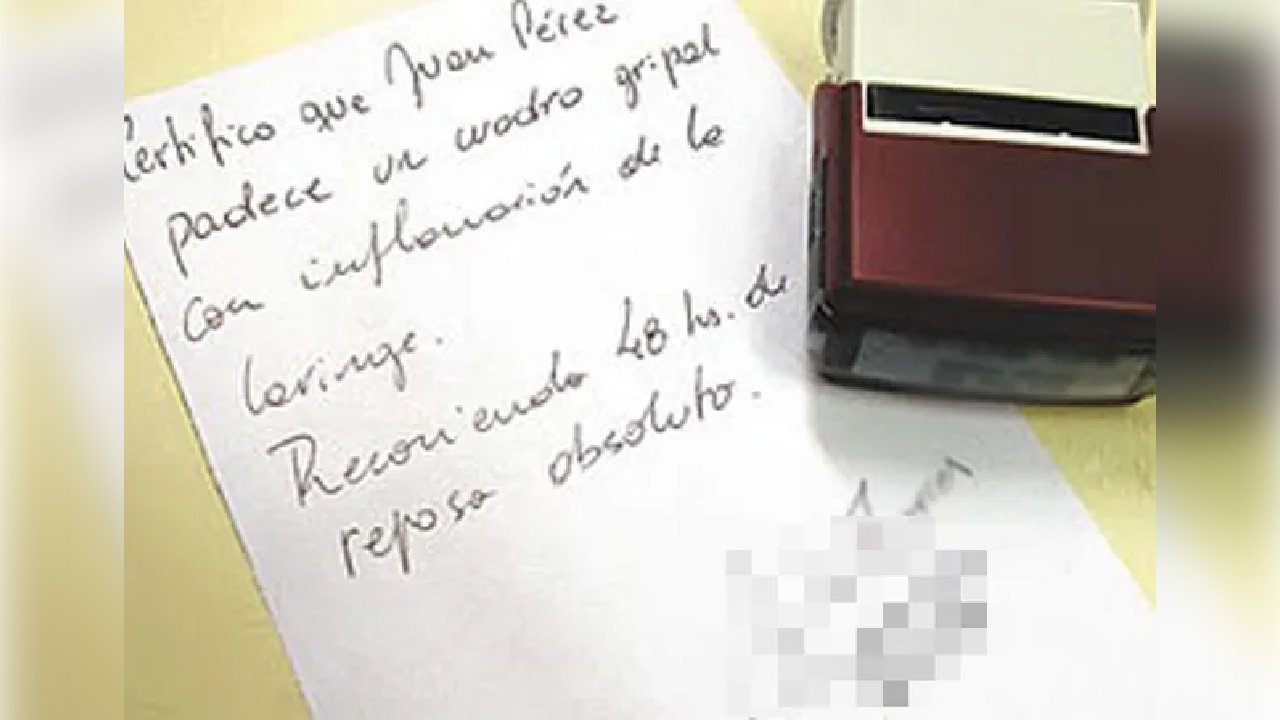 Certifico que Juan Pérez
padece un cuadro gripal
con inflamación de la
laringe.
Recomiendo 48 hs. de
reposo absoluto.